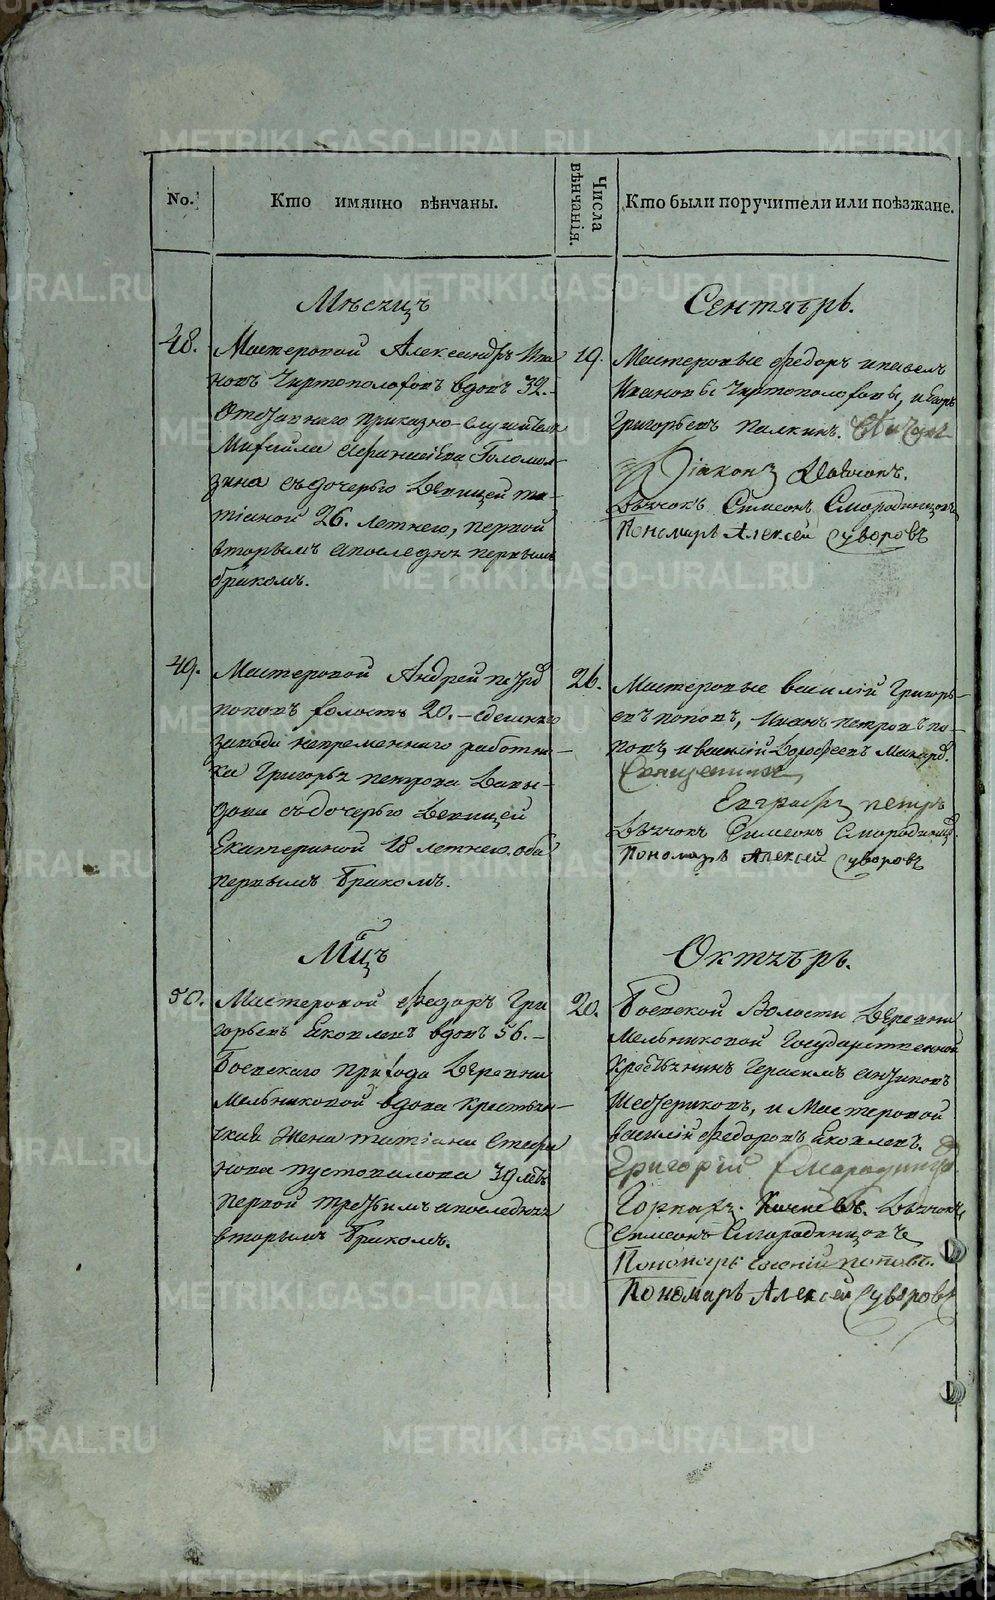 No.
Кто имянно вѣнчаны.
Числа вѣнчанія.
Кто были поручители или поѣзжане.
Мѣсяцъ
Сентябрь.
48.
Мастеровой Александръ Ива
новъ Чертополоховъ вдовъ 32.-
Отставнаго приказно-служителя
Михаила
зина съ дочерью девицей та-
тіаной 26. летнею, первой
вторымъ а последня первымъ
бракомъ.
19.
Мастеровые Федоръ и павелъ
Ивановы Чертополоховы, и
Григорьевъ палкинъ.
Діаконъ
Дьячокъ Симеонъ Смородинцовъ
Пономарь Алексей Суворовъ
49.
Мастеровой Андрей петровъ
поповъ холостъ 20.- сдешняго
завода непременнаго работни-
ка Григорья петрова Давы-
дова съ дочерью девицей
Екатериной 18 летнею. оба
первымъ бракомъ.
26.
Мастеровые василій Григорь-
евъ поповъ, Иванъ петровъ по-
повъ и василій Дорофеевъ
Священникъ
Евграфъ петръ
Дьячокъ Симеонъ Смородинцов
Пономарь Алексей Суворовъ
Мцъ
Октябрь.
50.
Мастеровой Федоръ Гри
горьевъ Яковлевъ вдовъ 56.-
Боевскаго прихода Деревни
Мельниковой вдова крестьян-
ская Жена татіана Стефа
нова пустовалова 39 летъ
первой третьимъ а последняя
вторымъ бракомъ.
20.
Боевской Волости Деревни
Мельниковой Государственной
крестьянинъ Герасимъ антиповъ
Шестериковъ, и Мастеровой
василій Федоровъ Яковлевъ.
Григорій Смородинцов
Дьячокъ
Симеонъ Смородинцовъ
Пономарь Евсений поповъ.
Пономарь Алексей Суворовъ
METRIKI.GASO-URAL.RU